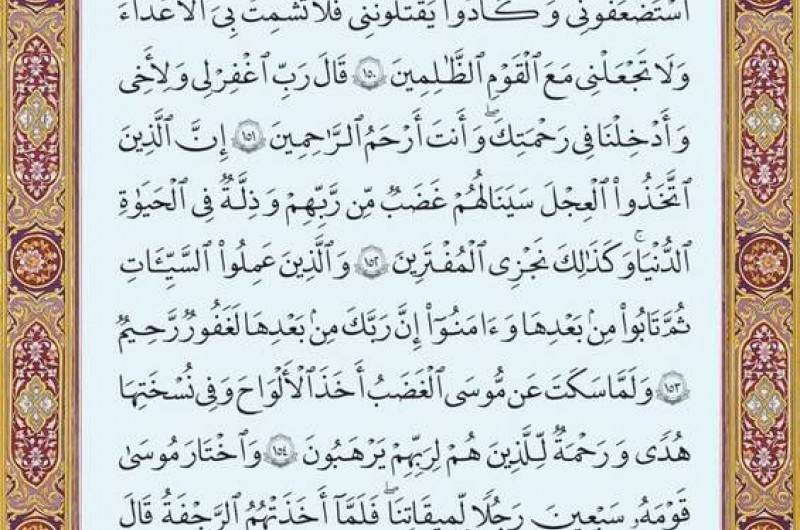 ٱسۡتَضۡعَفُونِي وَكَادُواْ يَقۡتُلُونَنِي فَلَا تُشۡمِتۡ بِيَ ٱلۡأَعۡدَآءَ
وَلَا تَجۡعَلۡنِي مَعَ ٱلۡقَوۡمِ ٱلظَّٰلِمِينَ ١٥٠ قَالَ رَبِّ ٱغۡفِرۡ لِي وَلِأَخِي
وَأَدۡخِلۡنَا فِي رَحۡمَتِكَۖ وَأَنتَ أَرۡحَمُ ٱلرَّٰحِمِينَ ١٥١ إِنَّ ٱلَّذِينَ
ٱتَّخَذُواْ ٱلۡعِجۡلَ سَيَنَالُهُمۡ غَضَبٞ مِّن رَّبِّهِمۡ وَذِلَّةٞ فِي ٱلۡحَيَوٰةِ
ٱلدُّنۡيَاۚ وَكَذَٰلِكَ نَجۡزِي ٱلۡمُفۡتَرِينَ ١٥٢ وَٱلَّذِينَ عَمِلُواْ ٱلسَّيِّـَٔاتِ
ثُمَّ تَابُواْ مِنۢ بَعۡدِهَا وَءَامَنُوٓاْ إِنَّ رَبَّكَ مِنۢ بَعۡدِهَا لَغَفُورٞ رَّحِيمٞ
١٥٣ وَلَمَّا سَكَتَ عَن مُّوسَى ٱلۡغَضَبُ أَخَذَ ٱلۡأَلۡوَاحَۖ وَفِي نُسۡخَتِهَا
هُدٗى وَرَحۡمَةٞ لِّلَّذِينَ هُمۡ لِرَبِّهِمۡ يَرۡهَبُونَ ١٥٤ وَٱخۡتَارَ مُوسَىٰ
قَوۡمَهُۥ سَبۡعِينَ رَجُلٗا لِّمِيقَٰتِنَاۖ فَلَمَّآ أَخَذَتۡهُمُ ٱلرَّجۡفَةُ قَالَ